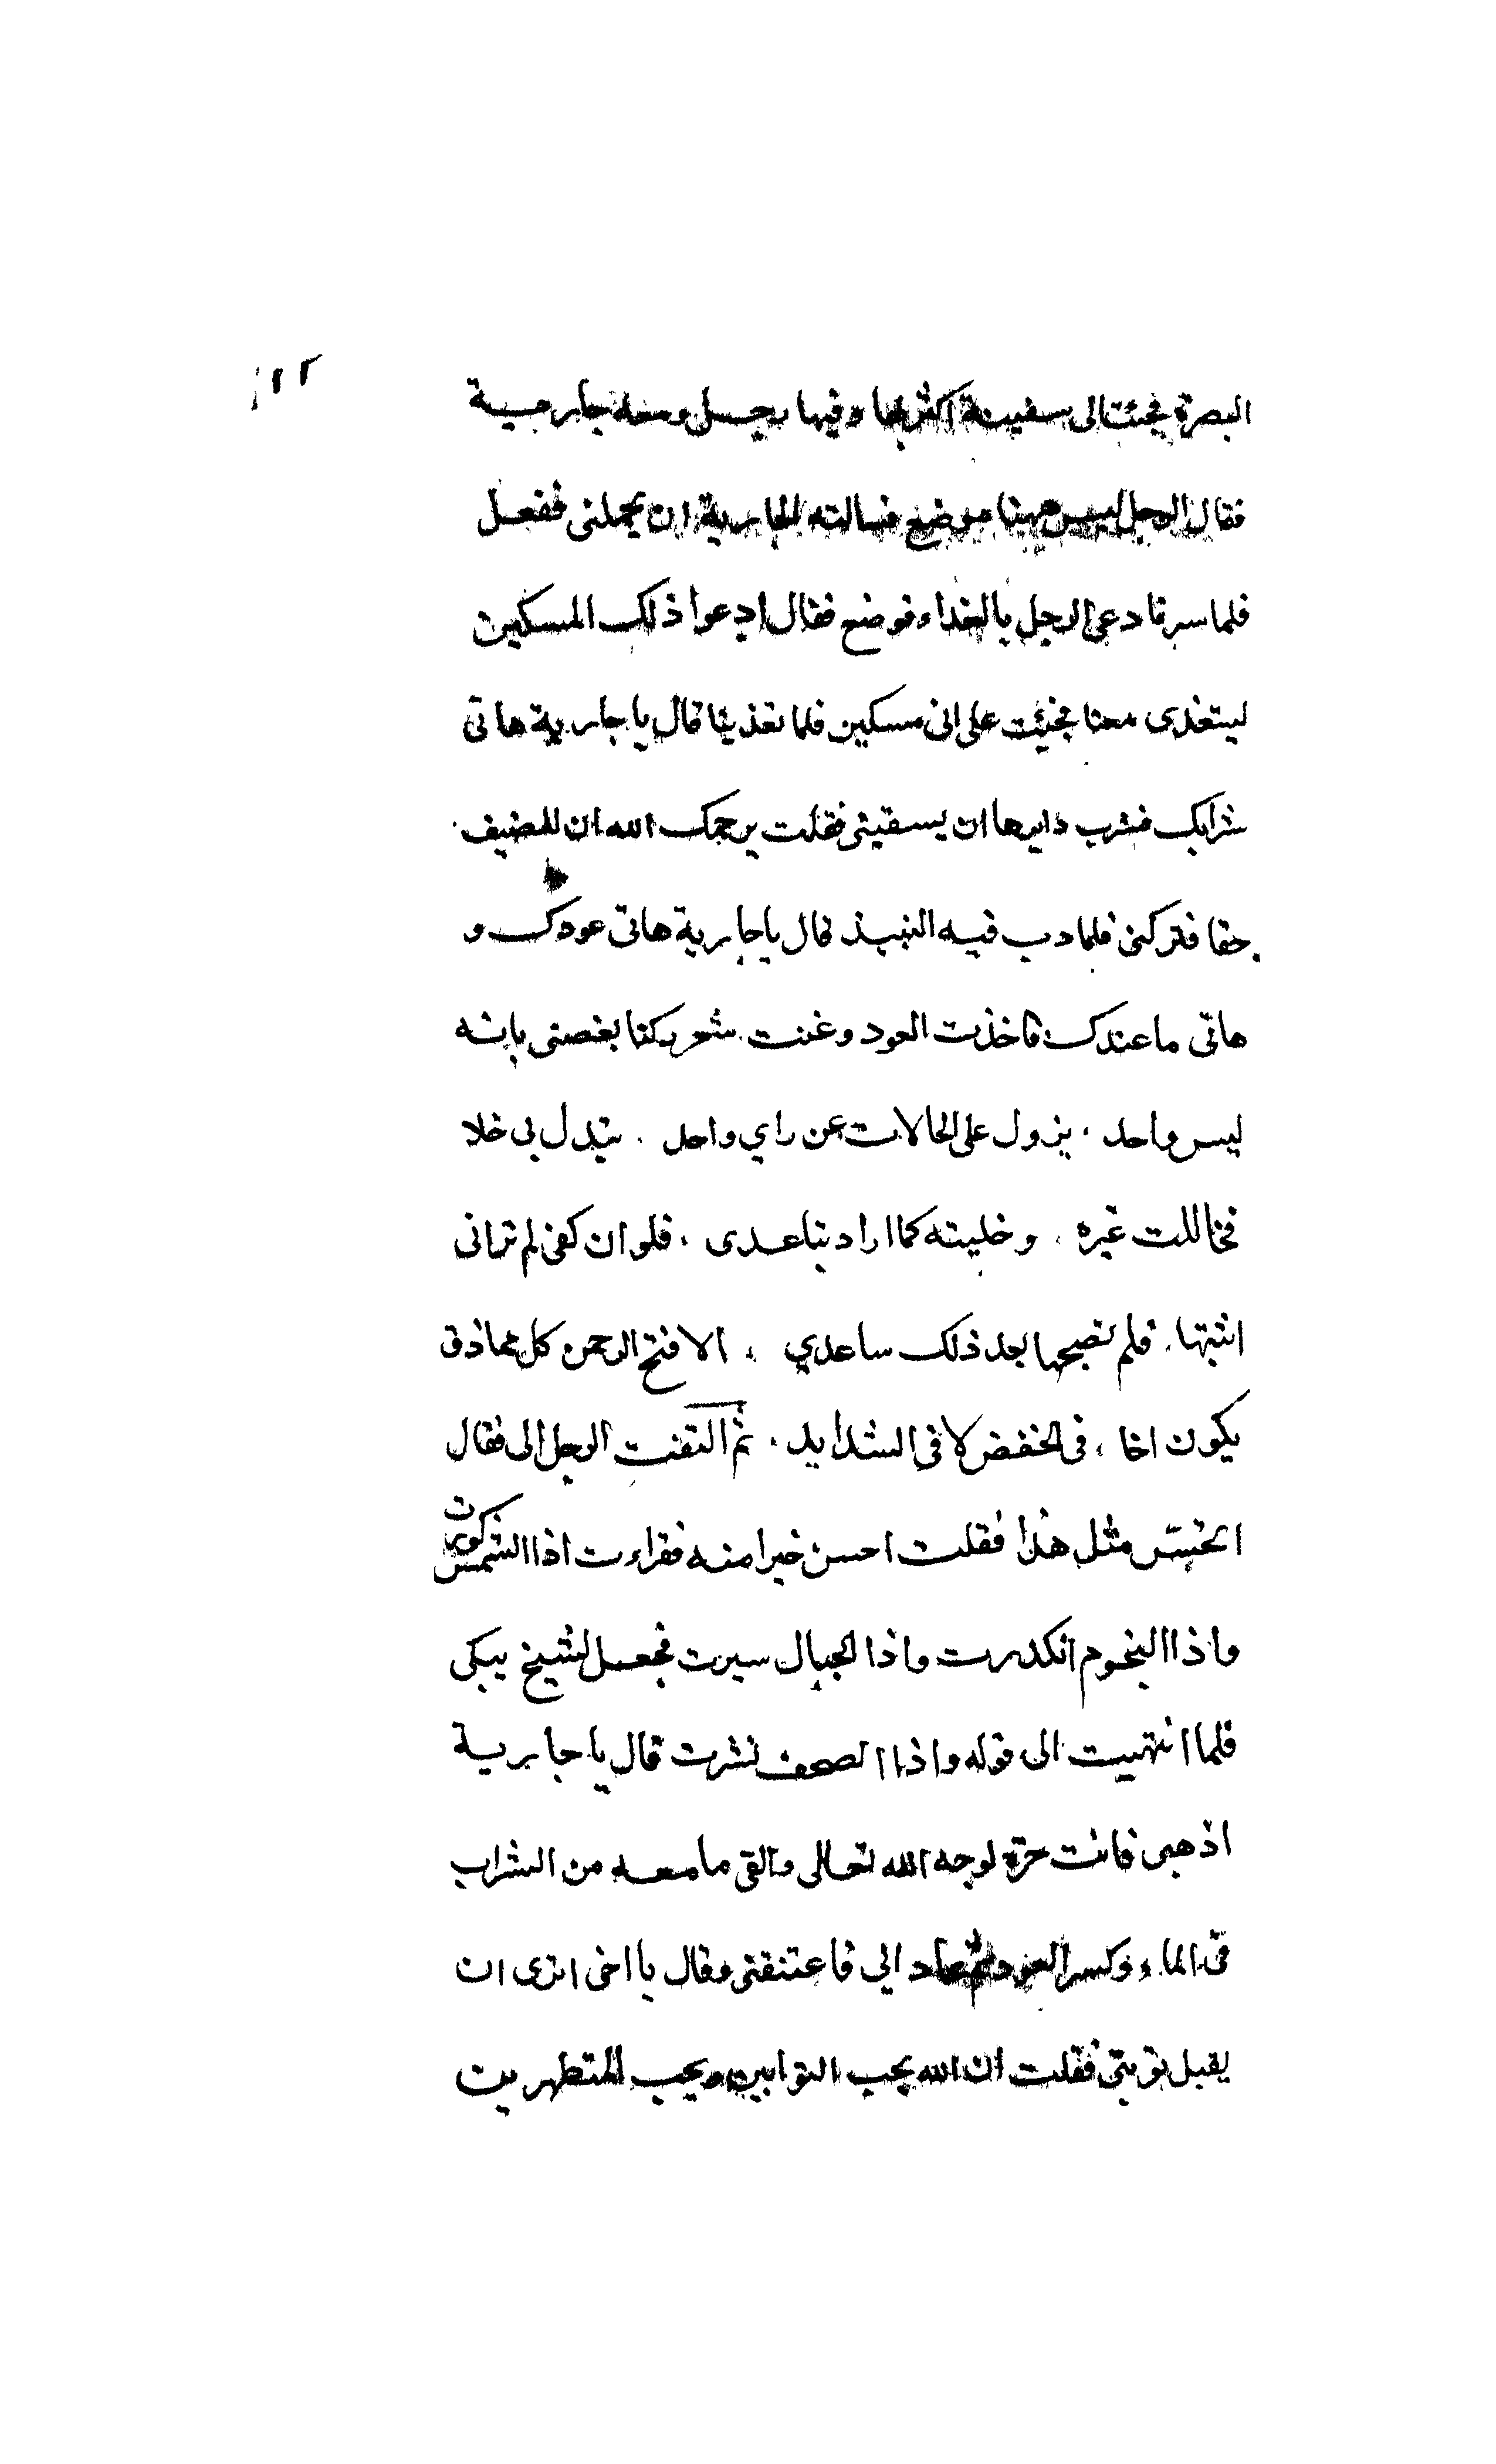 ١١٢
البصرة فجئت الى سفينة اكتريها وفيها رجل ومعه جارية
فقال الرجل ليس ههنا موضع فسالته الجارية ان يحملنى ففعل
فلما سرنا دعى الرجل بالغداء فوضع فقال ادعوا ذلك المسكين
ليتغدى معنا فجئت على انى مسكين فلما تغدينا قال يا جارية هاتى
شرابك فشرب وامرها ان يسقينى فقلت يرحمك الله ان للضيف
حقا فتركنى فلما دب فيه النبيذ قال يا جارية هاتى عودك و
هاتى ما عندك فاخذت العود وغنت شعر وكنا بغصنى بانه
ليس واحد . يزول على الحالات عن راي واحد . تبدل بى خلا
فخاللت غيره . وخليته كما اراد تباعدى . فلو ان كفى لم تردنى
ابنتها . فلم تصحبها بعد ذلك ساعدي . الا فتح الرحمن كل مماذق
يكون اخا . فى الخفض لا فى الشدايد . ثم التفت الرجل الى فقال
اتحسن مثل هذا فقلت احسن خيرا منه فقراءت اذا الشمس كورت
واذا النجوم انكدرت واذا الجبال سيرت فجعل الشيخ يبكى
فلما انتهيت الى قوله واذا الصحف نشرت قال يا جارية
اذهبى فانت حرة لوجه الله تعالى والقى ما معه من الشراب
فى الماء وكسر العود ثم عاد الي فاعتنقنى وقال يا اخى اترى ان
يقبل توبتى فقلت ان الله يحب التوابين ويحب المتطهرين